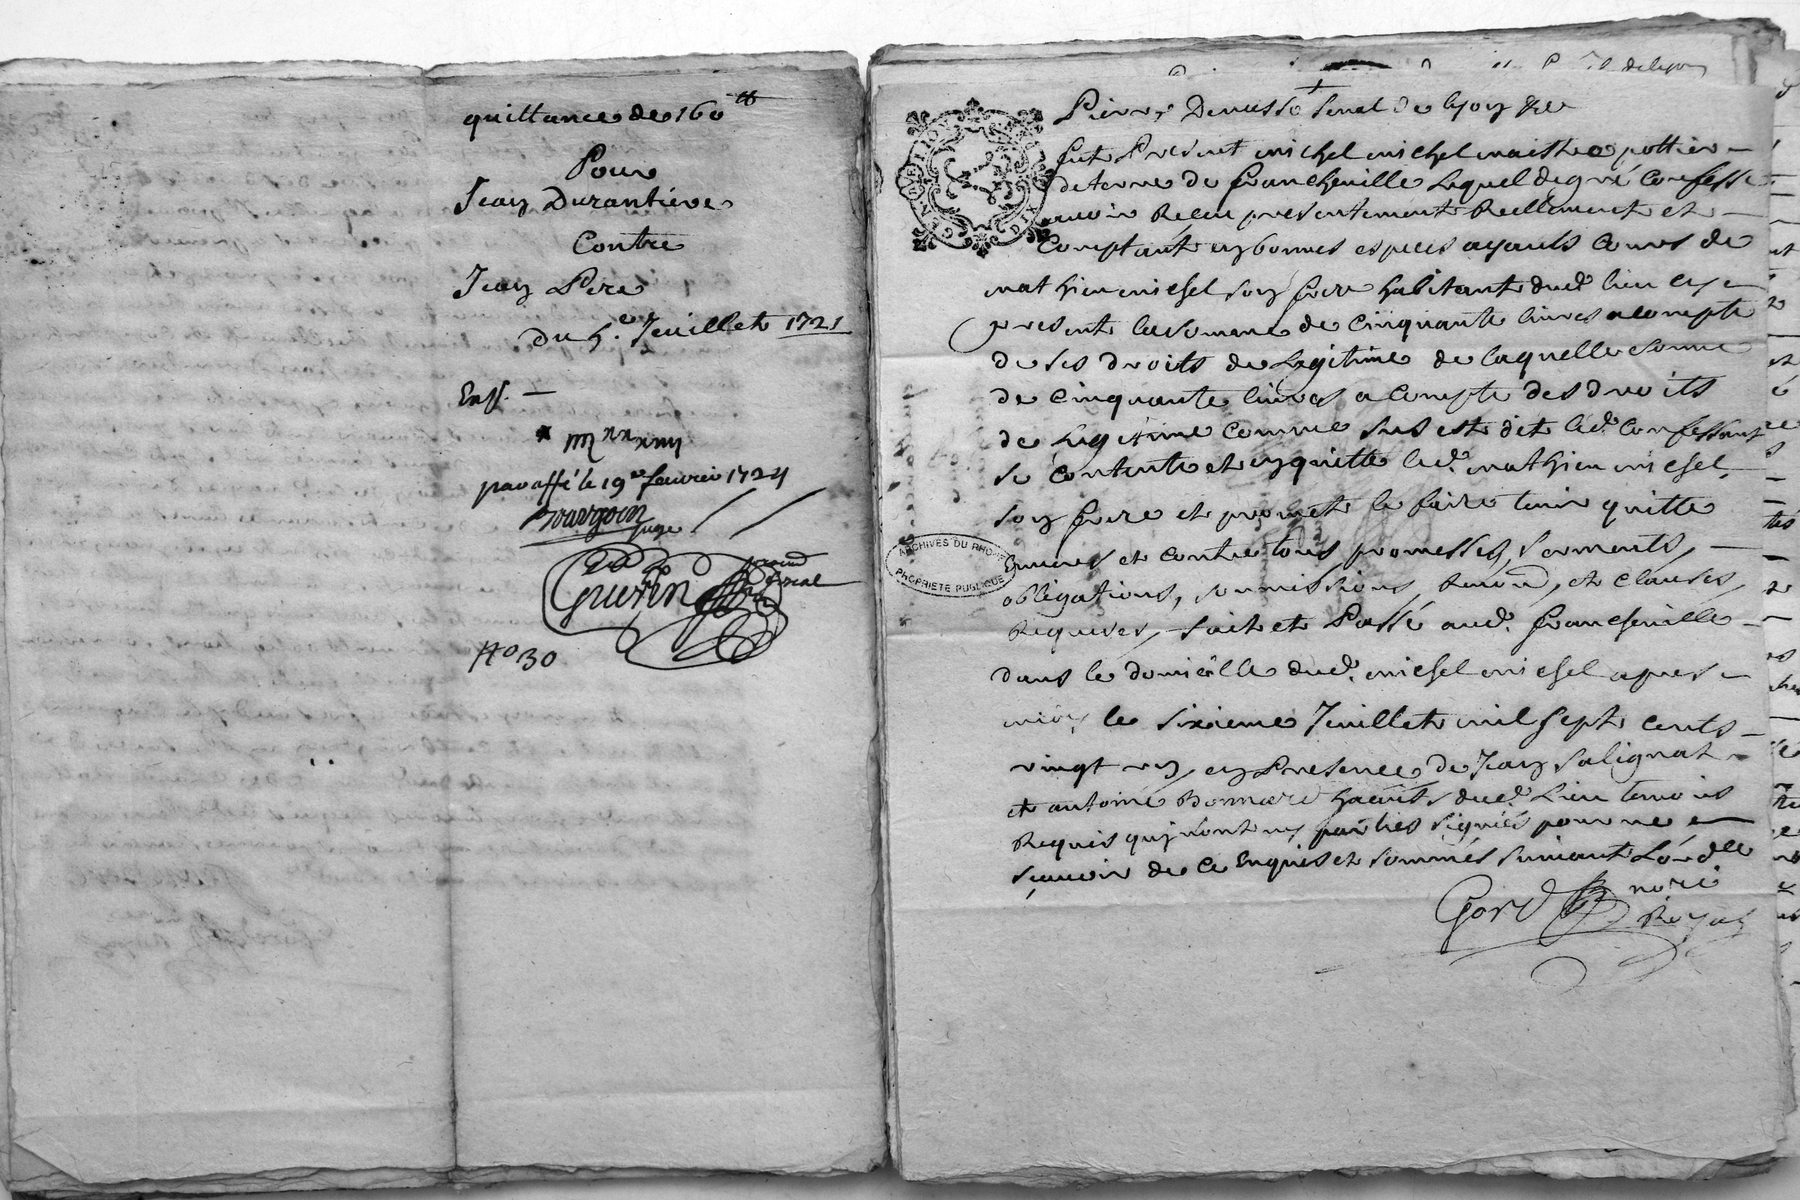 quittance de 160 tt
Pour
Jean Durantiere
Contre
Jean Pere
du 5e. Jeuillet 1721
Enss. —
paraffé le 19e fevrier 1724
Bourgoin
juge
Guerin
fiscal
No 30
de lyon
Pierre senal de Lyon &c
Fut Present michel michel maistre pottier —
de terre de francheville lequel de gré Confesse
avoir Receu presentement Reellement et —
Comptant en bonnes especes ayants Cours de
mathieu michel son frere habitant dud. lieu cy —
present la somme de Cinquante livres a compte
de ses droits de Legitime de laquelle somme
de Cinquante livres a Compte des droits
de Legitime Comme sus est dit led. Confessant
se Contente et en quitte led. mathieu michel
son frere et promet le faire tenir quitte
Envers et contre tous promesses, serments, —
obligations, soumissions, Renond, et clauses,
Requises, fait et Passé aud. francheville —
dans le domicille dud. michel michel apres —
midy le sixieme Jeuillet mil sept cents —
vingt un, en Presence de Jean Salignat —
et antoine Bonnard habits dud. Lieu temoins
Requis quy n'ont ny parties signés pour ne —
sçavoir de ce Enquis et sommés suivant L'ord.lle
Gord nore
Royal
GEN. DE LYON
DIX D.
ARCHIVES DU RHONE
PROPRIETE PUBLIQUE